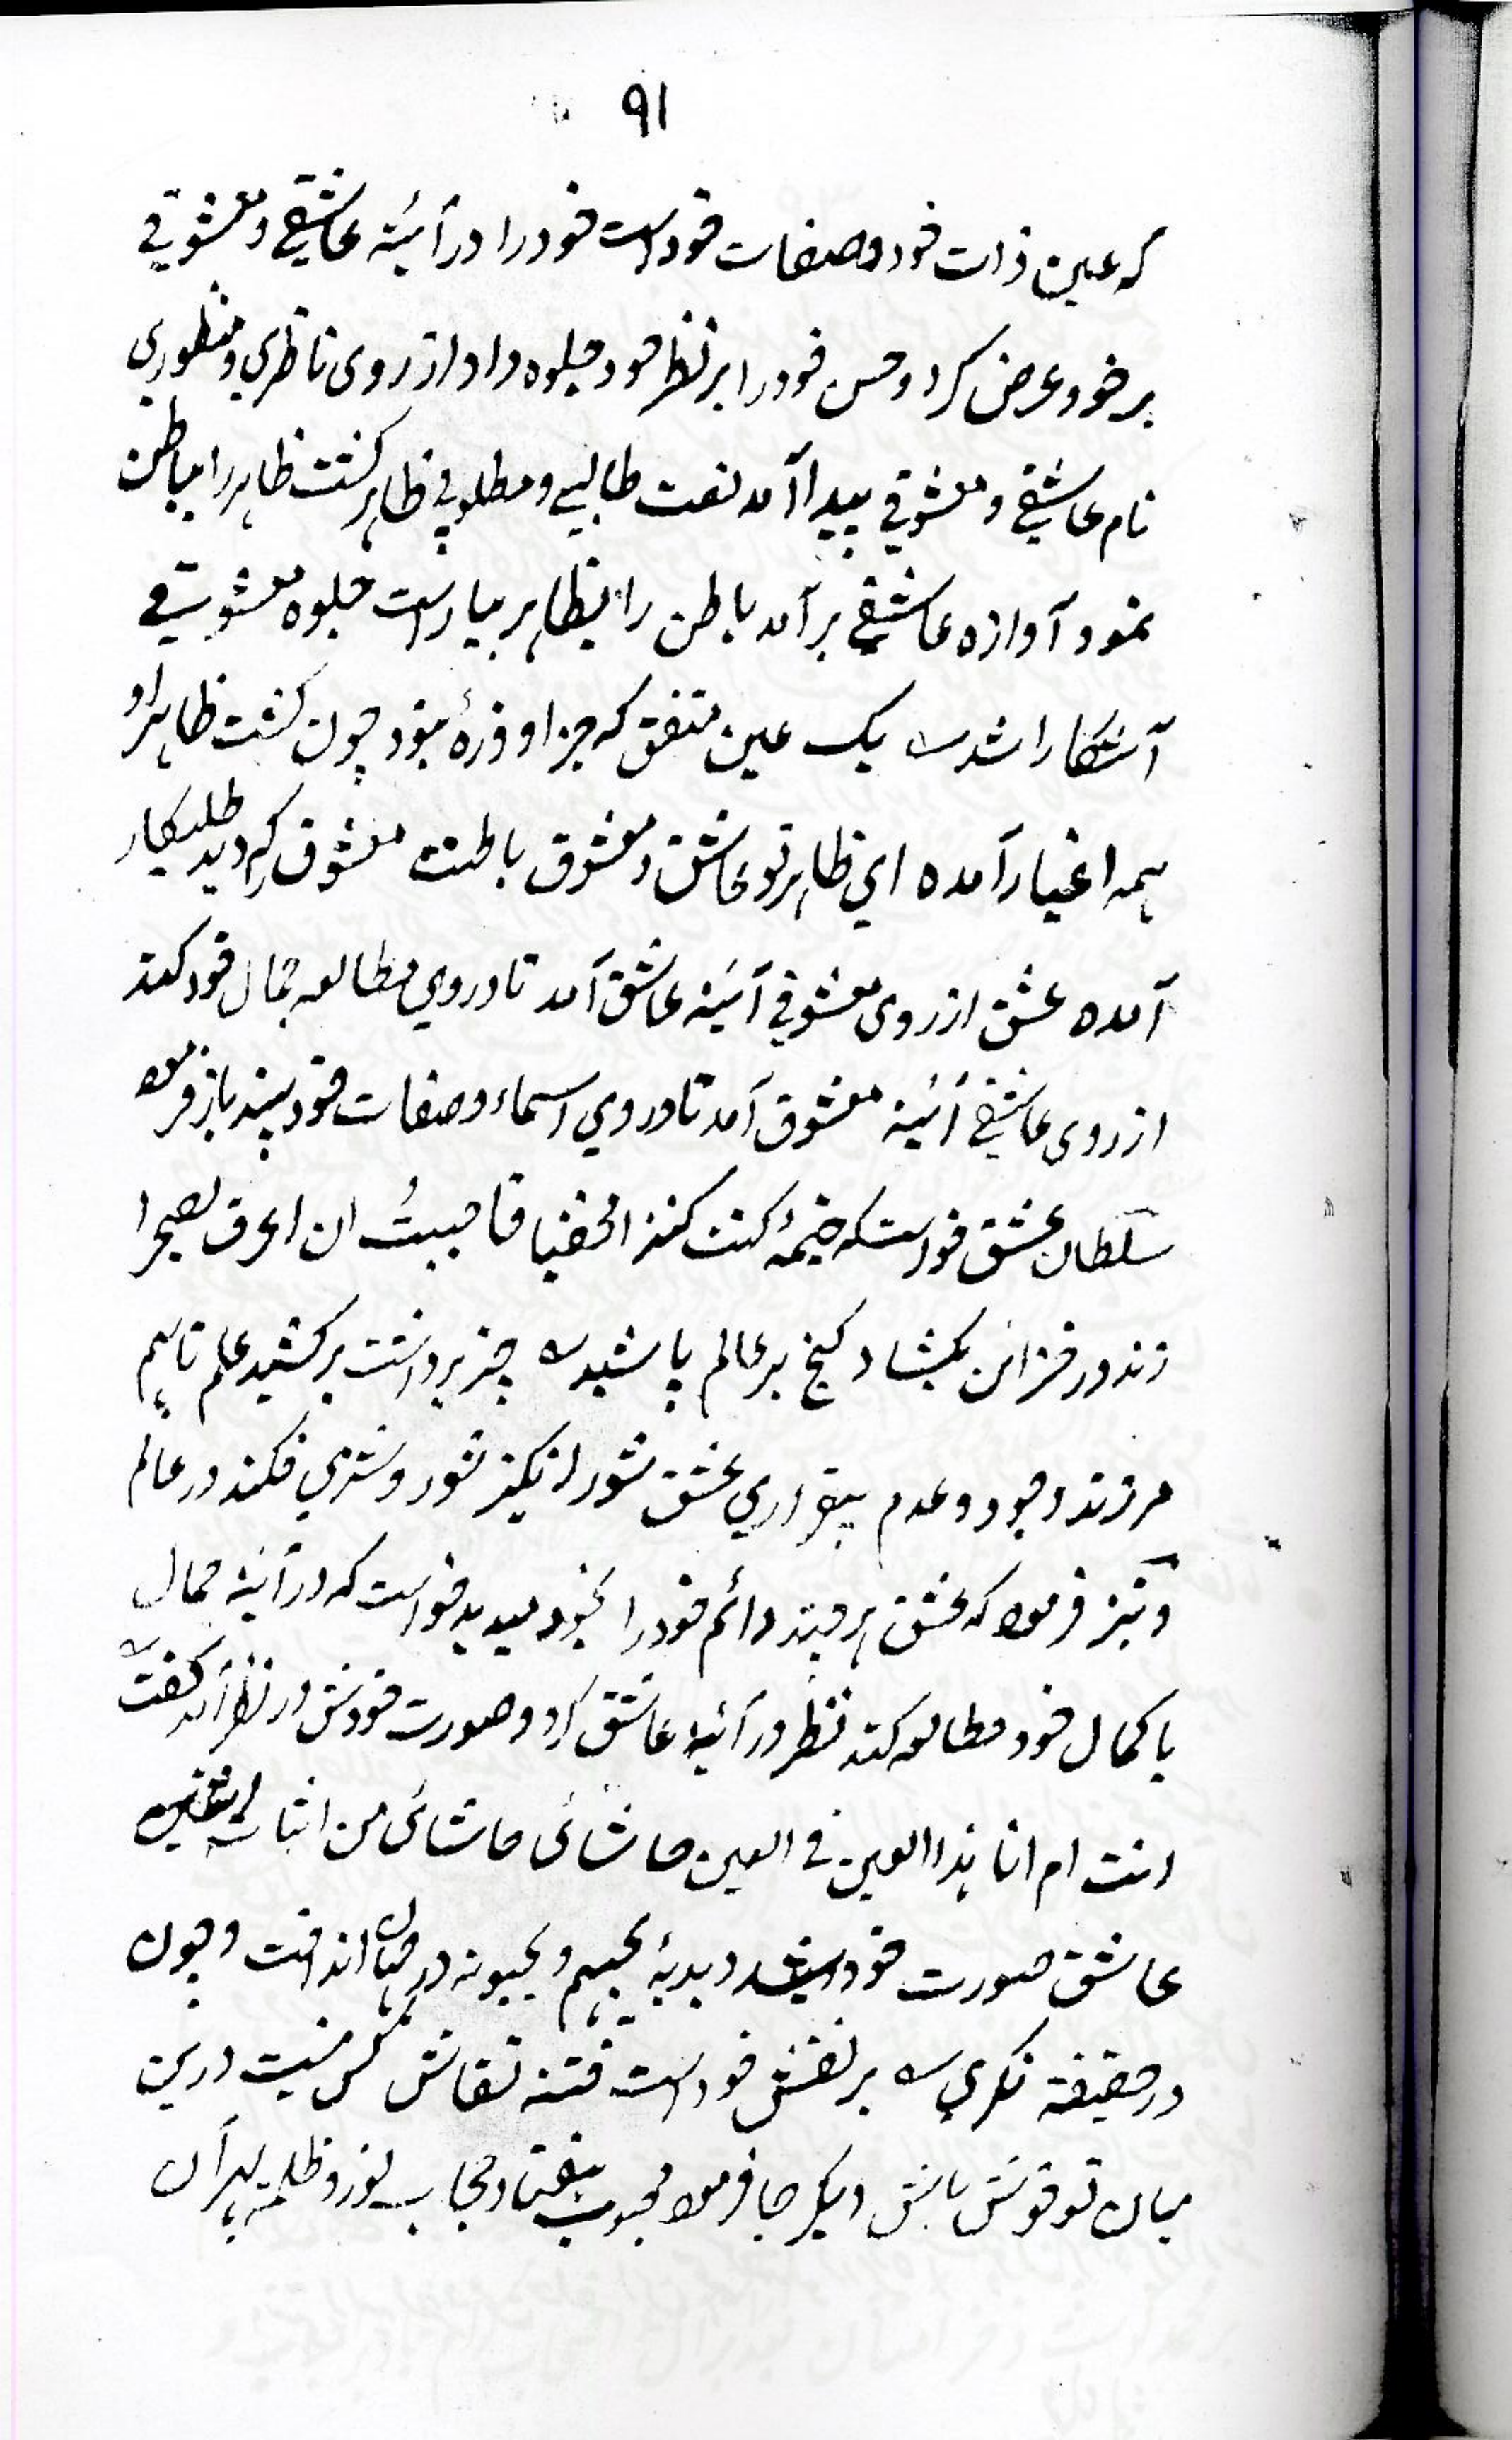 ۹۱
که عین ذات خود و صفات خود است خود را در آئینه عاشقی و معشوقی
بر خود عرض کرد و حسن خود را بر نظر خود جلوه داد از روی ناظری و منظوری
نام عاشقی و معشوقی پیدا آمد نعت طالبی و مطلوبی ظاهر کشت ظاهر را بباطن
نمود آوازه عاشقی بر آمد باطن را بظاهر بیاراست جلوه معشوقی
آشکارا شد ؎ یک عین متفق که جز او ذرهٔ نبود چون کشت ظاهر او
همه اغیار آمده ای ظاهر تو عاشق و معشوق باطنت معشوق که دید طلبکار
آمده عشق از روی معشوقی آئینه عاشق آمد تا در وی مطالعه جمال خود کند
از روی عاشقی آئینه معشوق آمد تا در وی اسماء و صفات خود بیند باز فرمود
سلطان عشق خواست که خیمهٔ کنت کنزا مخفیا فاحببتُ ان اعرف بصحرا
زند در خزائن بکشاد کنج بر عالم پاشید ؎ چتر برداشت بر کشید علم تا بهم
بر زند وجود و عدم بیقراری عشق شور انکیز شور و شری فکند در عالم
و نیز فرمود که عشق هر چند دائم خود را بخود میدید خواست که در آئینه جمال
با کمال خود مطالعه کند نظر در آئینهٔ عاشق کرد و صورت خودش در نظر آمد کفت ؎
انت ام انا هذا العین فی العین حاشائی حاشائی من اثبات اثنین
عاشق صورت خود دید بدبدبهٔ یحبهم و یحبونه در جهان انداخت و چون
در حقیقة نکری ؎ بر نقش خود است فتنه نقاش کس نیست درین
میان تو خوش باش دیکر جا فرمود محبوب هفتاد حجاب نور و ظلمة بهر آن